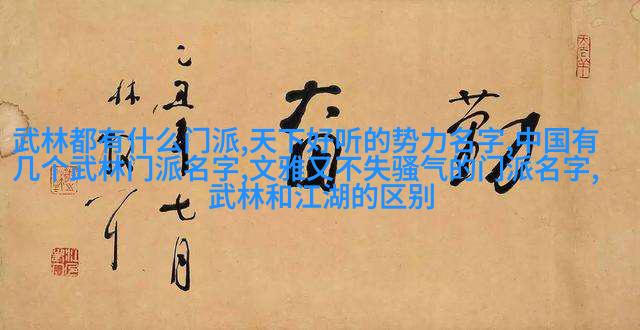 武林都有什么门派,天下好听的势力名字,中国有
几个武林门派名字,文雅又不失骚气的门派名字,
武林和江湖的区别
勤奋
乙丑年七月
林散耳